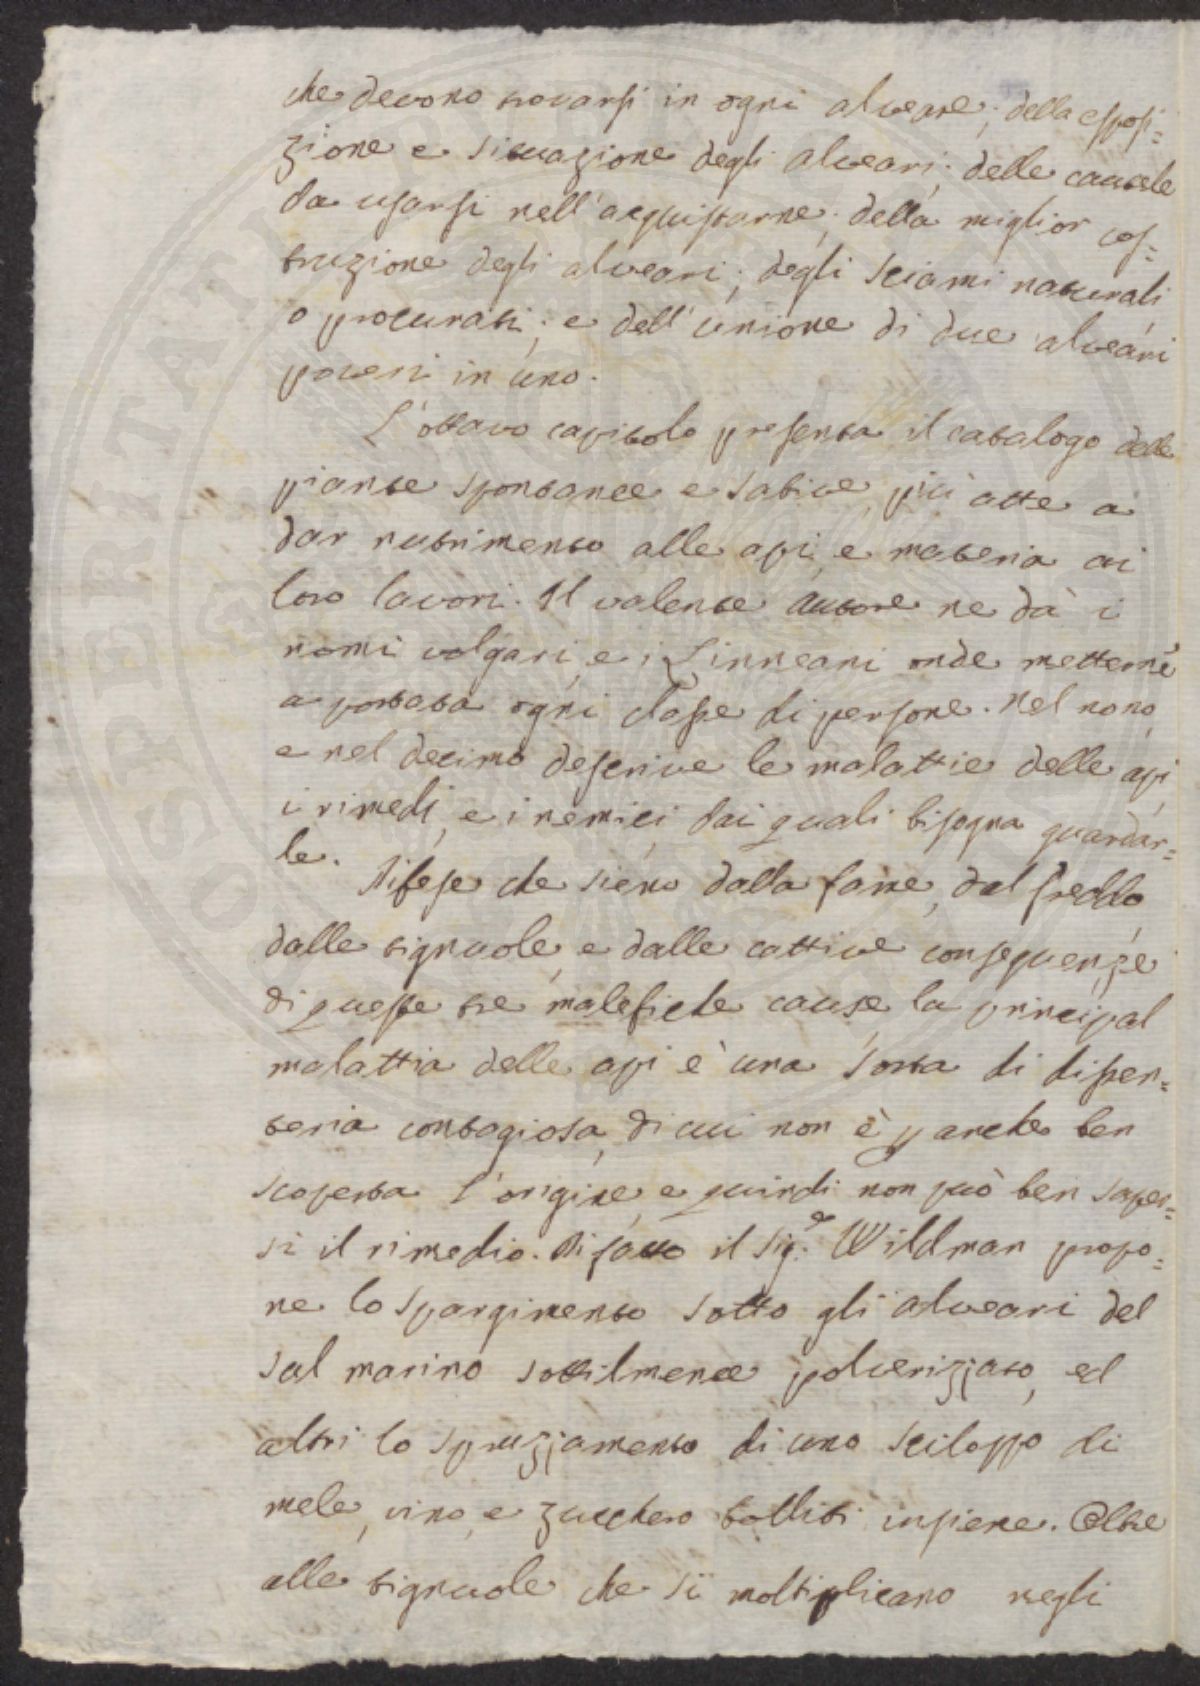 che devono trovarsi in ogni alveare; della esposi=
zione e situazione degli alveari; delle cautele
da usarsi nell'acquistarne; della miglior cos=
truzione degli alveari; degli sciami naturali
o procurati; e dell'unione di due alveari
poveri in uno.
L'ottavo capitolo presenta il catalogo delle
piante spontanee e sative più atte a
dar nutrimento alle api e materia ai
loro lavori. Il valente autore ne dà i
nomi volgari, e i Linneani onde metterne
a portata ogni classe di persone. Nel nono,
e nel decimo descrive le malattie delle api,
i rimedj, e i nemici dai quali bisogna guardar=
le. Difese che sieno dalla fame, dal freddo,
dalle tignuole, e dalle cattive conseguenze
di queste tre malefiche cause la principal
malattia delle api è una sorta di dissen=
teria contagiosa, di cui non è p anche ben
scoperta l'origine, e quindi non può ben saper=
si il rimedio. Di fatto il Sig.e Wildman propo=
ne lo spargimento sotto gli alveari del
sal marino sottilmente polverizzato, ed
altri lo spruzzamento di uno sciloppo di
mele, vino, e zucchero bolliti insieme. Oltre
alle tignuole che si moltiplicano negli
PROSPERITATI PUBLICAE